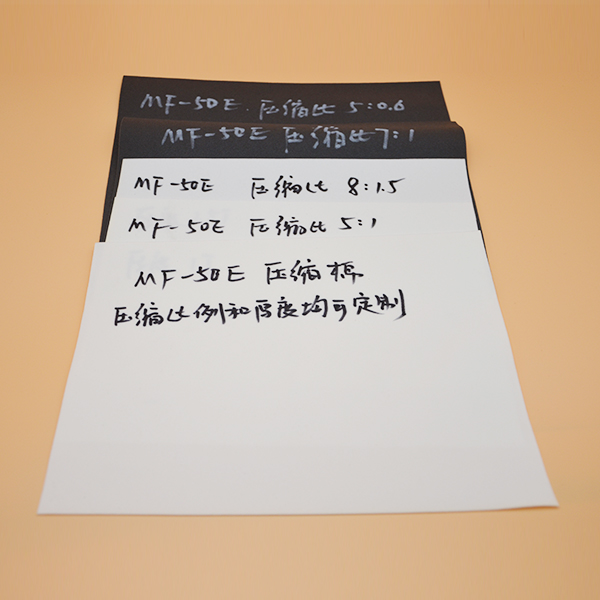 MF-50E 压缩比 5:0.6
MF-50E 压缩比 7:1
MF-50E 压缩比 8:1.5
MF-50E 压缩比 5:1
MF-50E 压缩棉
压缩比例和厚度均可定制